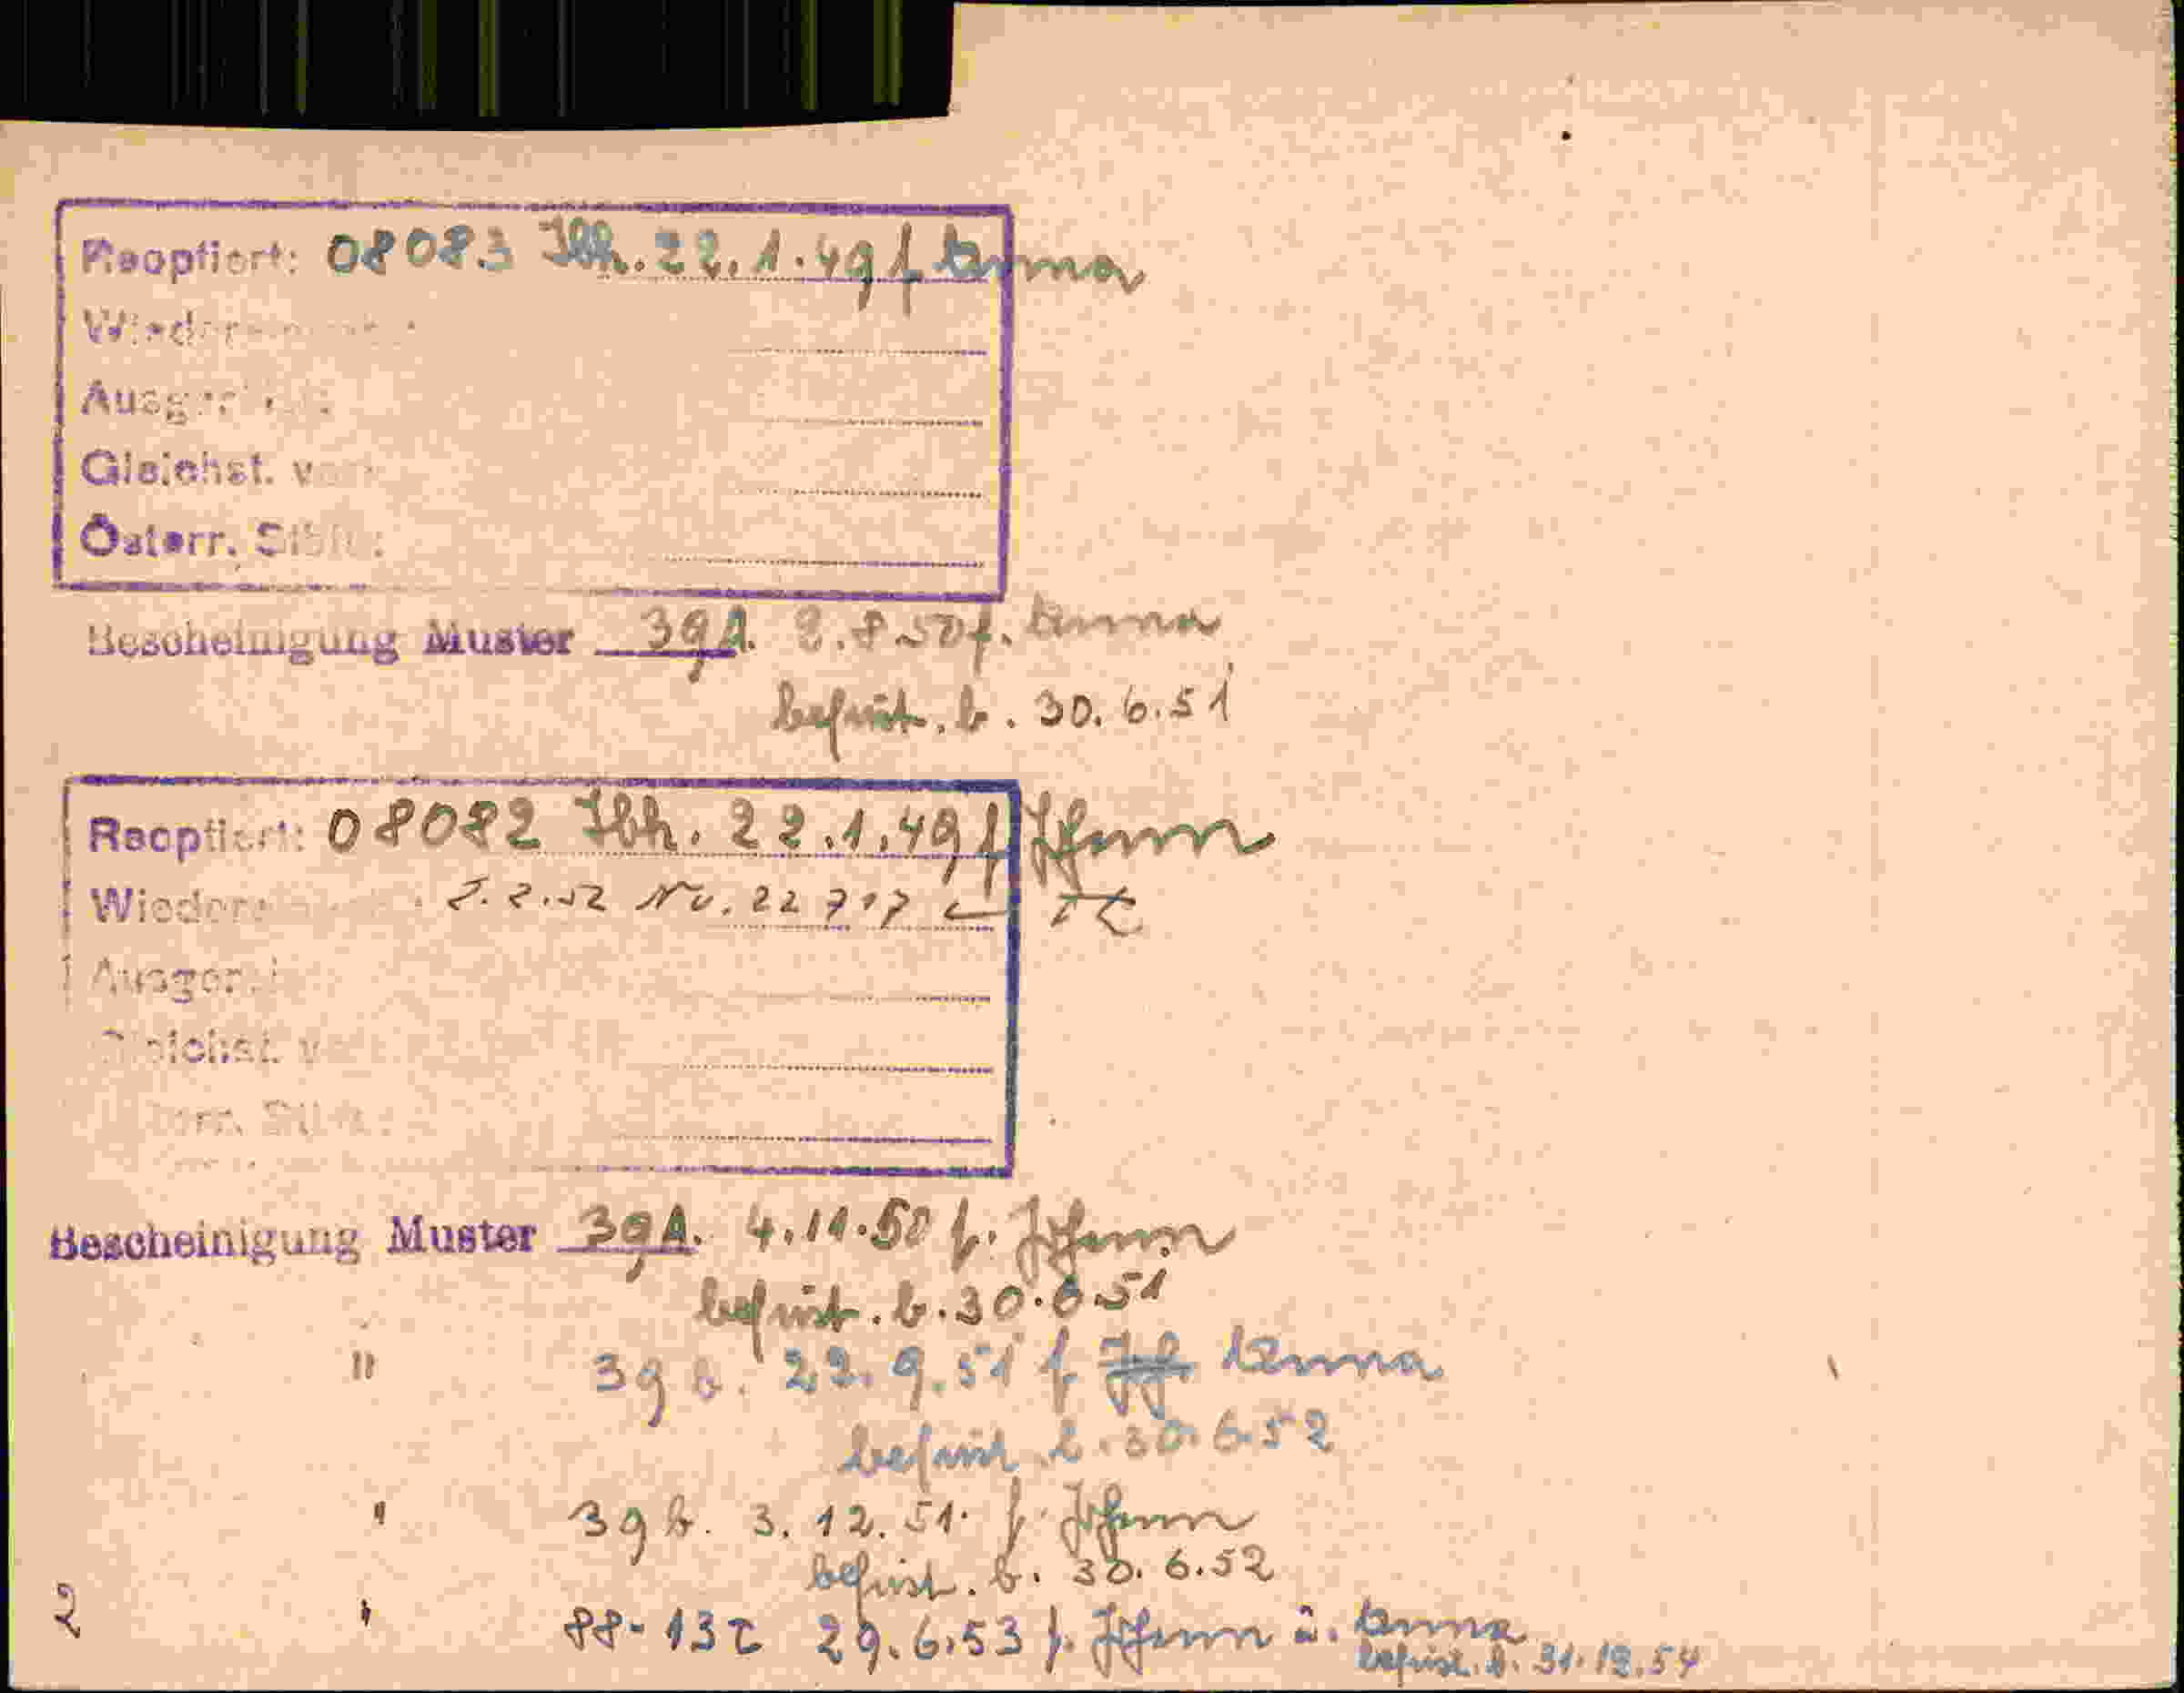 Reoptiert: 08083 Ibk. 22.1.49 f Anna
Gleichst. v
Österr. Stb
Bescheinigung Muster 39A. 2.8.50 f. Anna
befrist. b. 30.6.51
Reoptiert: 08082 Ibk. 22.1.49 f Johann
2.2.52 No. 22717
Gleichst. v
Bescheinigung Muster 39A. 4.11.50 f. Johann
befrist. b. 30.6.51
" 39 b. 22.9.51 f Joh Anna
befrist b. 30.6.52
" 39 b. 3.12.51. f. Johann
befrist. b. 30.6.52
2 " 88-13c 29.6.53 f. Johann u. Anna
befrist. b. 31.12.54